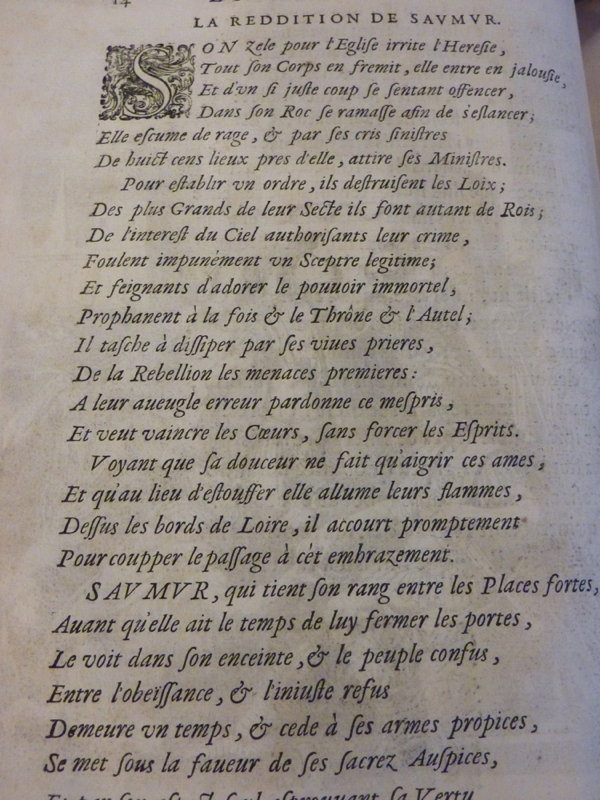 14
LA REDDITION DE SAVMVR.
SON zele pour l'Eglise irrite l'Heresie,
Tout son Corps en fremit, elle entre en jalousie,
Et d'vn si juste coup se sentant offencer,
Dans son Roc se ramasse afin de s'eslancer;
Elle escume de rage, & par ses cris sinistres
De huict cens lieux pres d'elle, attire ses Ministres.
Pour establir vn ordre, ils destruisent les Loix;
Des plus Grands de leur Secte ils font autant de Rois;
De l'interest du Ciel authorisants leur crime,
Foulent impunément vn Sceptre legitime;
Et feignants d'adorer le pouuoir immortel,
Prophanent à la fois & le Thrône & l'Autel;
Il tasche à dissiper par ses viues prieres,
De la Rebellion les menaces premieres:
A leur aueugle erreur pardonne ce mespris,
Et veut vaincre les Cœurs, sans forcer les Esprits.
Voyant que sa douceur ne fait qu'aigrir ces ames,
Et qu'au lieu d'estouffer elle allume leurs flammes,
Dessus les bords de Loire, il accourt promptement
Pour coupper le passage à cét embrazement.
SAVMVR, qui tient son rang entre les Places fortes,
Auant qu'elle ait le temps de luy fermer les portes,
Le voit dans son enceinte, & le peuple confus,
Entre l'obeïssance, & l'iniuste refus
Demeure vn temps, & cede à ses armes propices,
Se met sous la faueur de ses sacrez Auspices,
la Vertu